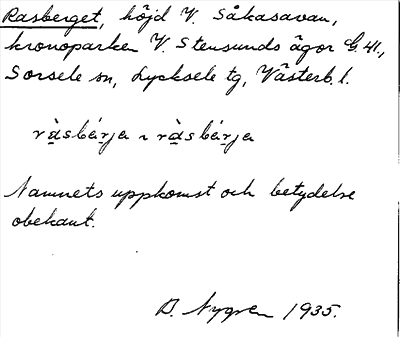 Rasberget, höjd V. Såkasavan,
kronoparken V. Stensunds ägor G. 41.,
Sorsele sn, Lycksele tg, Västerb. l.
ràsbärja ~ ràsbärja
Namnets uppkomst och betydelse
obekant.
D. Nygren 1935.